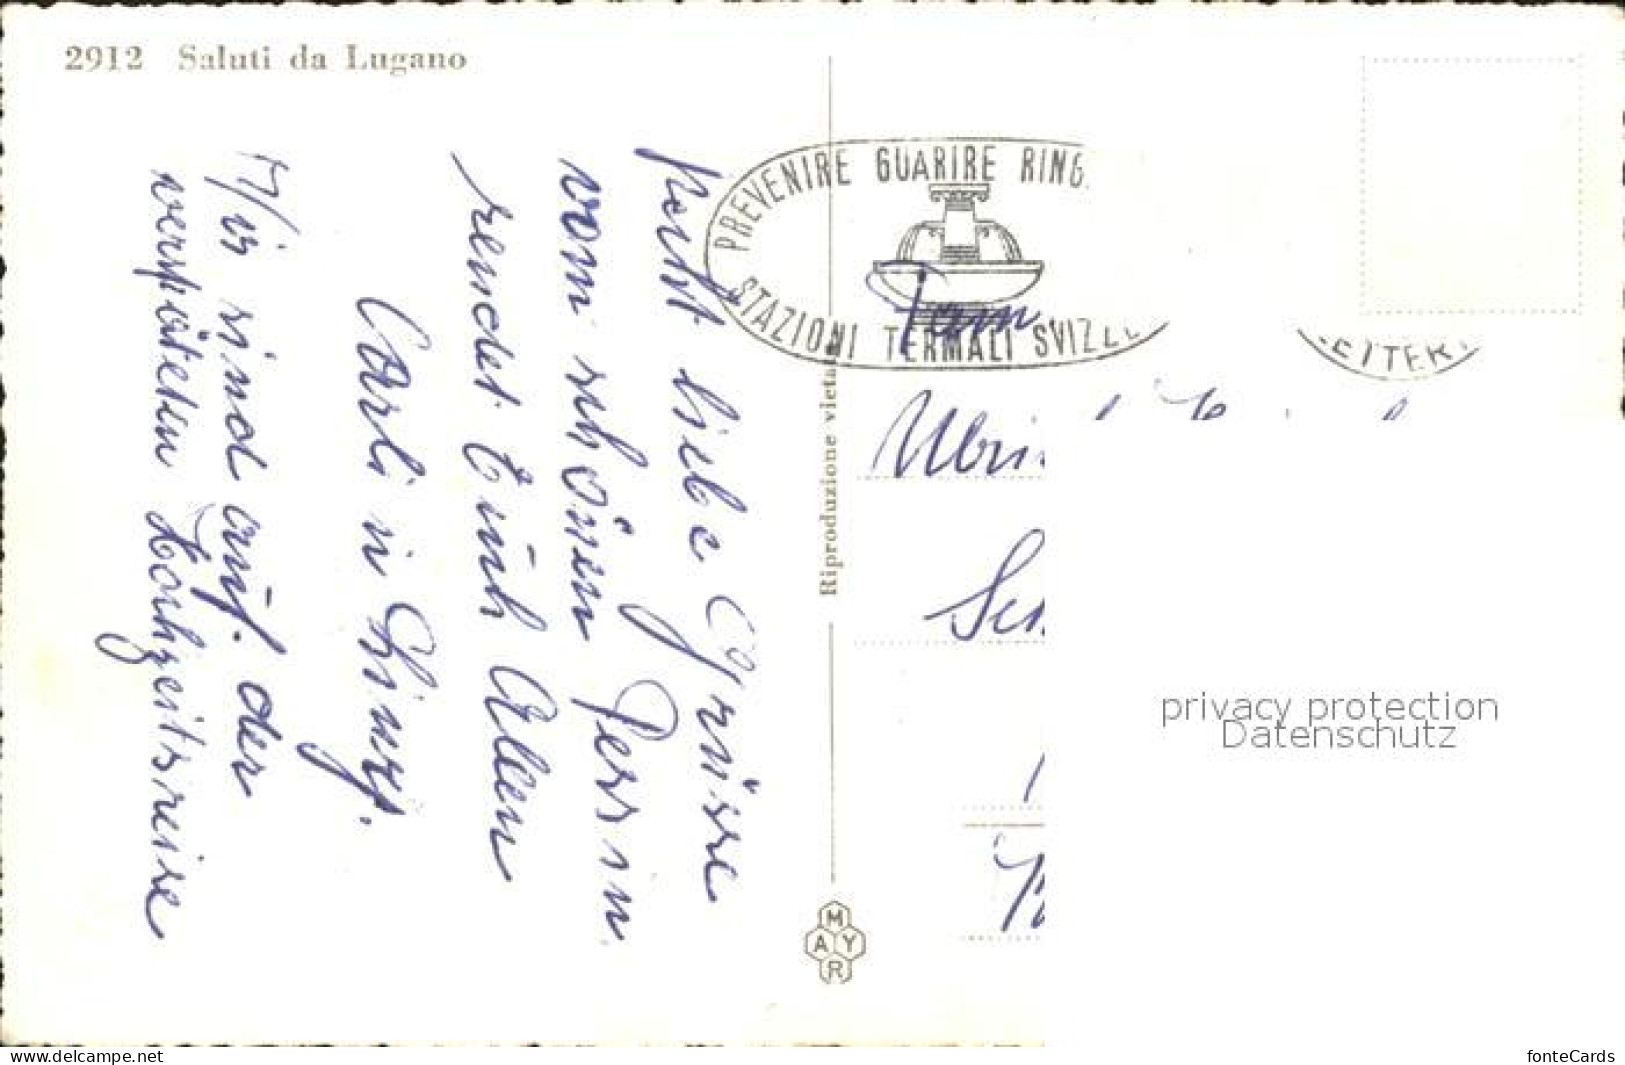 2912 Saluti da Lugano
PREVENIRE GUARIRE RING
STAZIONI TERMALI SVIZZE
EITER
Recht liebe Grüsse
vom schönen Tessin
sendet Euch Allen
Carli u
Wir sind auf der
verspäteten Hochzeitsreise
Fam.
Riproduzione vieta
MAYR
privacy protection
Datenschutz
www.delcampe.net
fonteCards